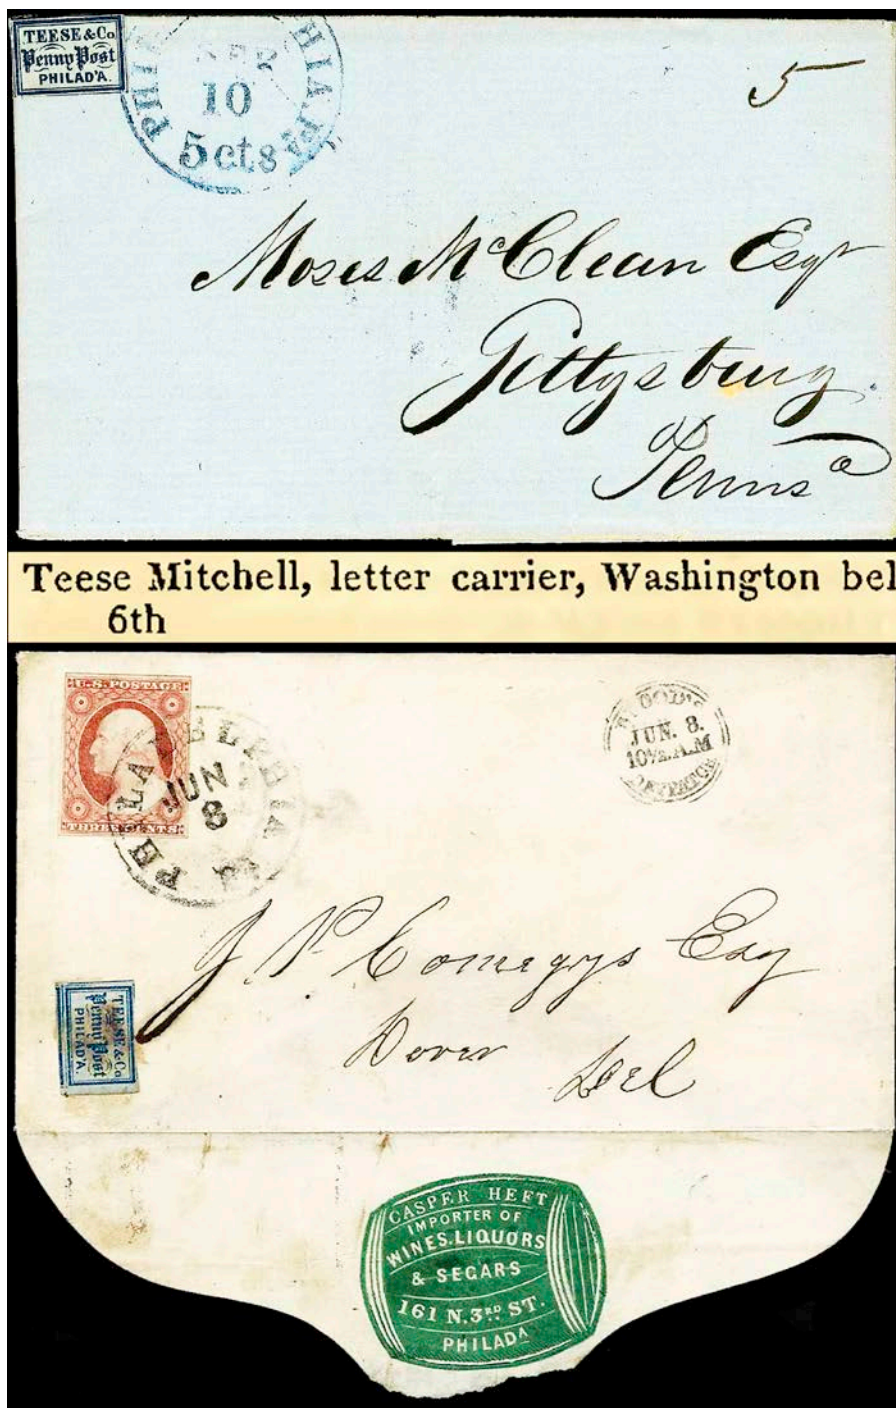 TEESE & Co
Penny Post
PHILAD'A.
PHI HIA PA
SEP
10
5 cts
5
Moses McClean Esqr
Gettysburg
Penns a
Teese Mitchell, letter carrier, Washington bel
6th
U.S. POSTAGE
THREE CENTS
PHILADELPHIA Pa
JUN
8
BLOOD'S
JUN. 8.
10½ A.M
DESPATCH
J P Comegys Esq
Dover
Del
TEESE & Co
Penny Post
PHILAD'A.
CASPER HEFT
IMPORTER OF
WINES, LIQUORS
& SEGARS
161 N. 3RD ST.
PHILADA